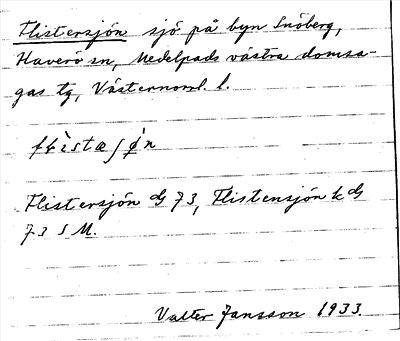 Flistersjön sjö på byn Snöberg,
Haverö sn, Medelpads västra domsa-
gas tg, Västernorrl. l.
Flistersjön ds 73, Flistensjön k ds
73 S M.
Valter Jansson 1933.